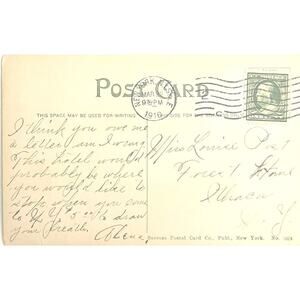 POST CARD
NEW YORK
MAR
9 PM
1910
THIS SPACE MAY BE USED FOR WRITING
I think you owe me
a letter am I wrong
This hotel would
probably be where
you would like to
stop when you come
to N.Y. to draw
your breath.
Lena
Miss Louise Post
Forest Home
Ithaca
N.Y.
Success Postal Card Co., Publ., New York. No.